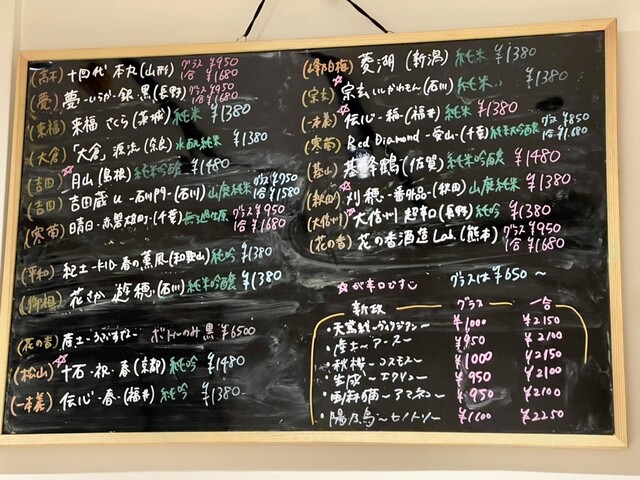 (高木) 十四代 本丸 (山形) グラス ¥950 1合 ¥1680
(夢) 夢 銀・黒 (長野) グラス ¥950 1合 ¥1680
(来福) 来福 さくら (茨城) 純米 ¥1380
(大倉) 「大倉」源流 (奈良) 水酛純米 ¥1380
(吉田) 月山 (島根) 純米吟醸 ¥1480
(吉田) 吉田蔵u -石川門- (石川) 山廃純米 グラス ¥750 1合 ¥1580
(寒菊) 晴日 -赤磐雄町- (千葉) グラス ¥950 1合 ¥1680
(平和) 紀土 -KID- 春の薫風 (和歌山) 純吟 ¥1380
(御祖) 穂 (石川) 純米吟醸 ¥1380
(花の香) 産土 ボトルのみ 黒 ¥6500
(松山) 十石・祝・春 (京都) 純吟 ¥1480
(一本義) 伝心・春・(福井) 純吟 ¥1380
(峰乃白梅) 菱湖 (新潟) 純米 ¥1380
(宗玄) 宗玄 (石川) 純米 ¥1380
(一本義) 伝心 -稲- (福井) 純米 ¥1380
(寒菊) Red Diamond -愛山- (千葉) 純米大吟醸 グラス ¥850 1合 ¥1680
(基山) 基峰鶴 (佐賀) 純米吟醸 ¥1480
(秋田) 刈穂 -番外品- (秋田) 山廃純米 ¥1380
(大信州) 大信州 超辛口 (長野) 純吟 ¥1380
(花の香) 花の香酒造 Lab. (熊本) グラス ¥950 1合 ¥1680
☆が辛口です グラスは¥650〜
新政 グラス 一合
・天蛙 ¥1000 ¥2150
・ アース〜 ¥950 ¥2100
・秋櫻〜コスモス〜 ¥1000 ¥2150
・生成〜エクリュ〜 ¥950 ¥2100
・ ¥950 ¥2100
・陽乃鳥〜ヒノトリ〜 ¥1100 ¥2250